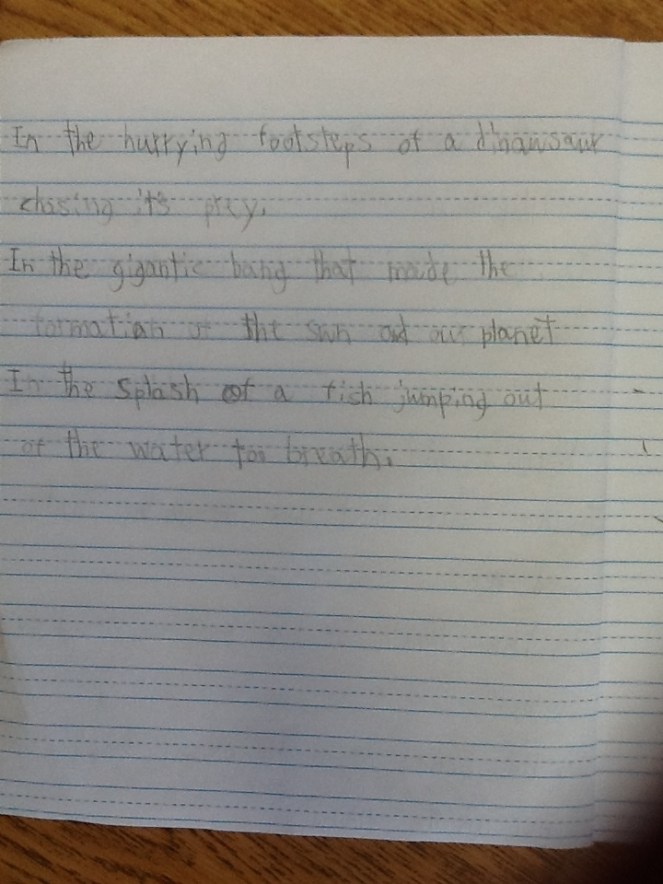 In the hurrying footsteps of a dinawsaur
chasing it's prey.
In the gigantic bang that made the
formation of the sun and our planet
In the splash of a fish jumping out
of the water too breath.